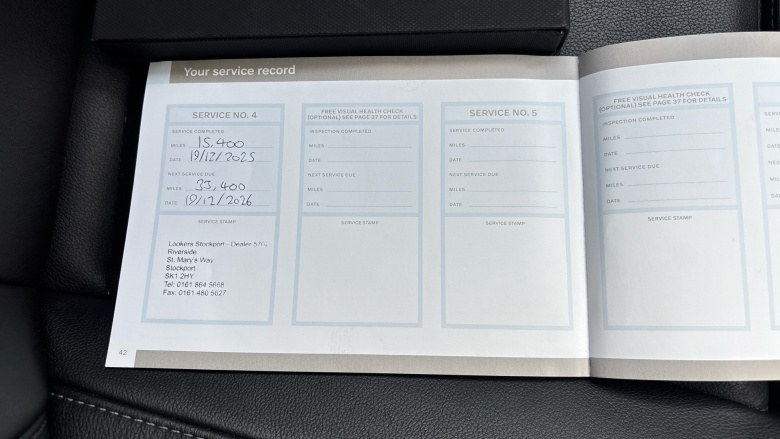 Your service record
SERVICE NO. 4
SERVICE COMPLETED
MILES 15,400
DATE 19/12/2025
NEXT SERVICE DUE
MILES 33,400
DATE 19/12/2026
SERVICE STAMP
Lookers Stockport - Dealer
Riverside
St. Mary's Way
Stockport
SK1 2HY
Tel: 0161 864 5668
Fax: 0161 480 5627
42
FREE VISUAL HEALTH CHECK
(OPTIONAL) SEE PAGE 37 FOR DETAILS
INSPECTION COMPLETED
MILES
DATE
NEXT SERVICE DUE
MILES
DATE
SERVICE STAMP
SERVICE NO. 5
SERVICE COMPLETED
MILES
DATE
NEXT SERVICE DUE
MILES
DATE
SERVICE STAMP
FREE VISUAL HEALTH CHECK
(OPTIONAL) SEE PAGE 37 FOR DETAILS
INSPECTION COMPLETED
MILES
DATE
NEXT SERVICE DUE
MILES
DATE
SERVICE STAMP